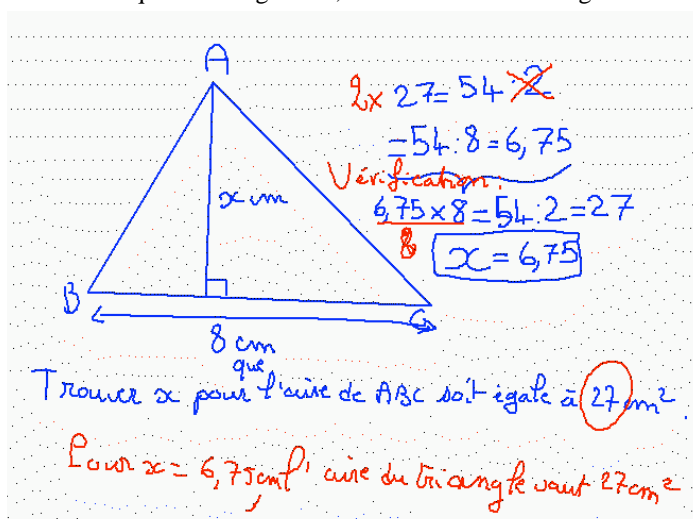 A
2x 27 = 54 : 2
= 54 : 8 = 6,75
Vérification :
x cm
6,75 x 8 = 54 : 2 = 27
8
x = 6,75
B
C
8 cm
que
Trouver x pour l'aire de ABC soit égale à 27 cm².
Pour x = 6,75 cm, l'aire du triangle vaut 27 cm²